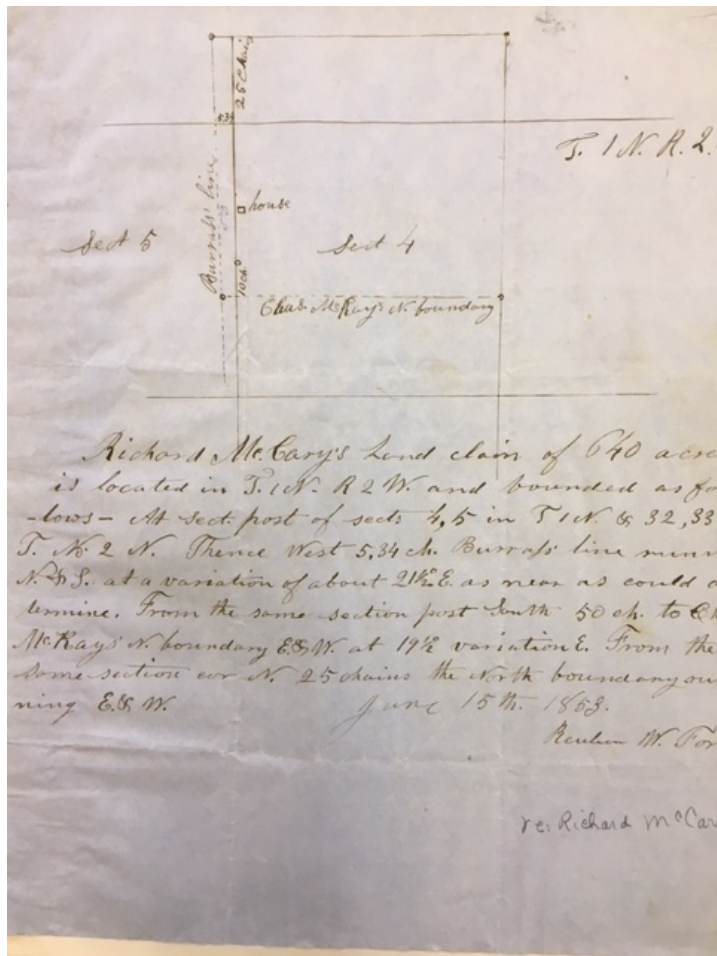 25 Chain
5.34
T. 1 N. R. 2.
Burrass' line
house
Sect 5
Sect 4
10 ch
Chas. McKay's N. boundary
Richard McCary's Land claim of 640 acre
is located in T. 1 N. R 2 W. and bounded as fo
-lows - At sect. post of sects 4, 5 in T 1 N. & 32, 33
T. No. 2 N. Thence West 5,34 ch. Burrass' line runn
N. & S. at a variation of about 21½ E. as near as could d
termine. From the same section post South 50 ch. to Ch
McKay's N. boundary E. & W. at 19½ variation E. From the
same section cor N. 25 chains the North boundary
ning E. & W. June 15th. 1853.
Reuben W. For
re: Richard McCar